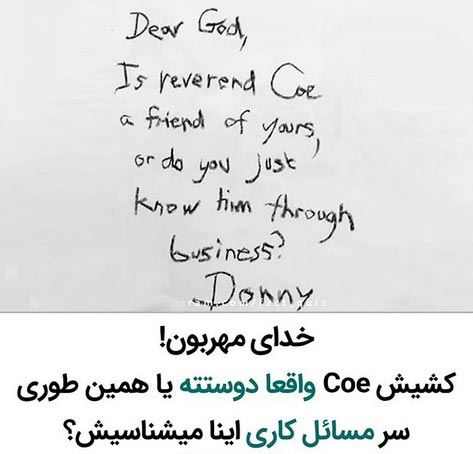 Dear God,
Is reverend Coe
a friend of yours,
or do you just
know him through
business?
Donny
خدای مهربون!
کشیش Coe واقعا دوستته یا همین طوری
سر مسائل کاری اینا میشناسیش؟